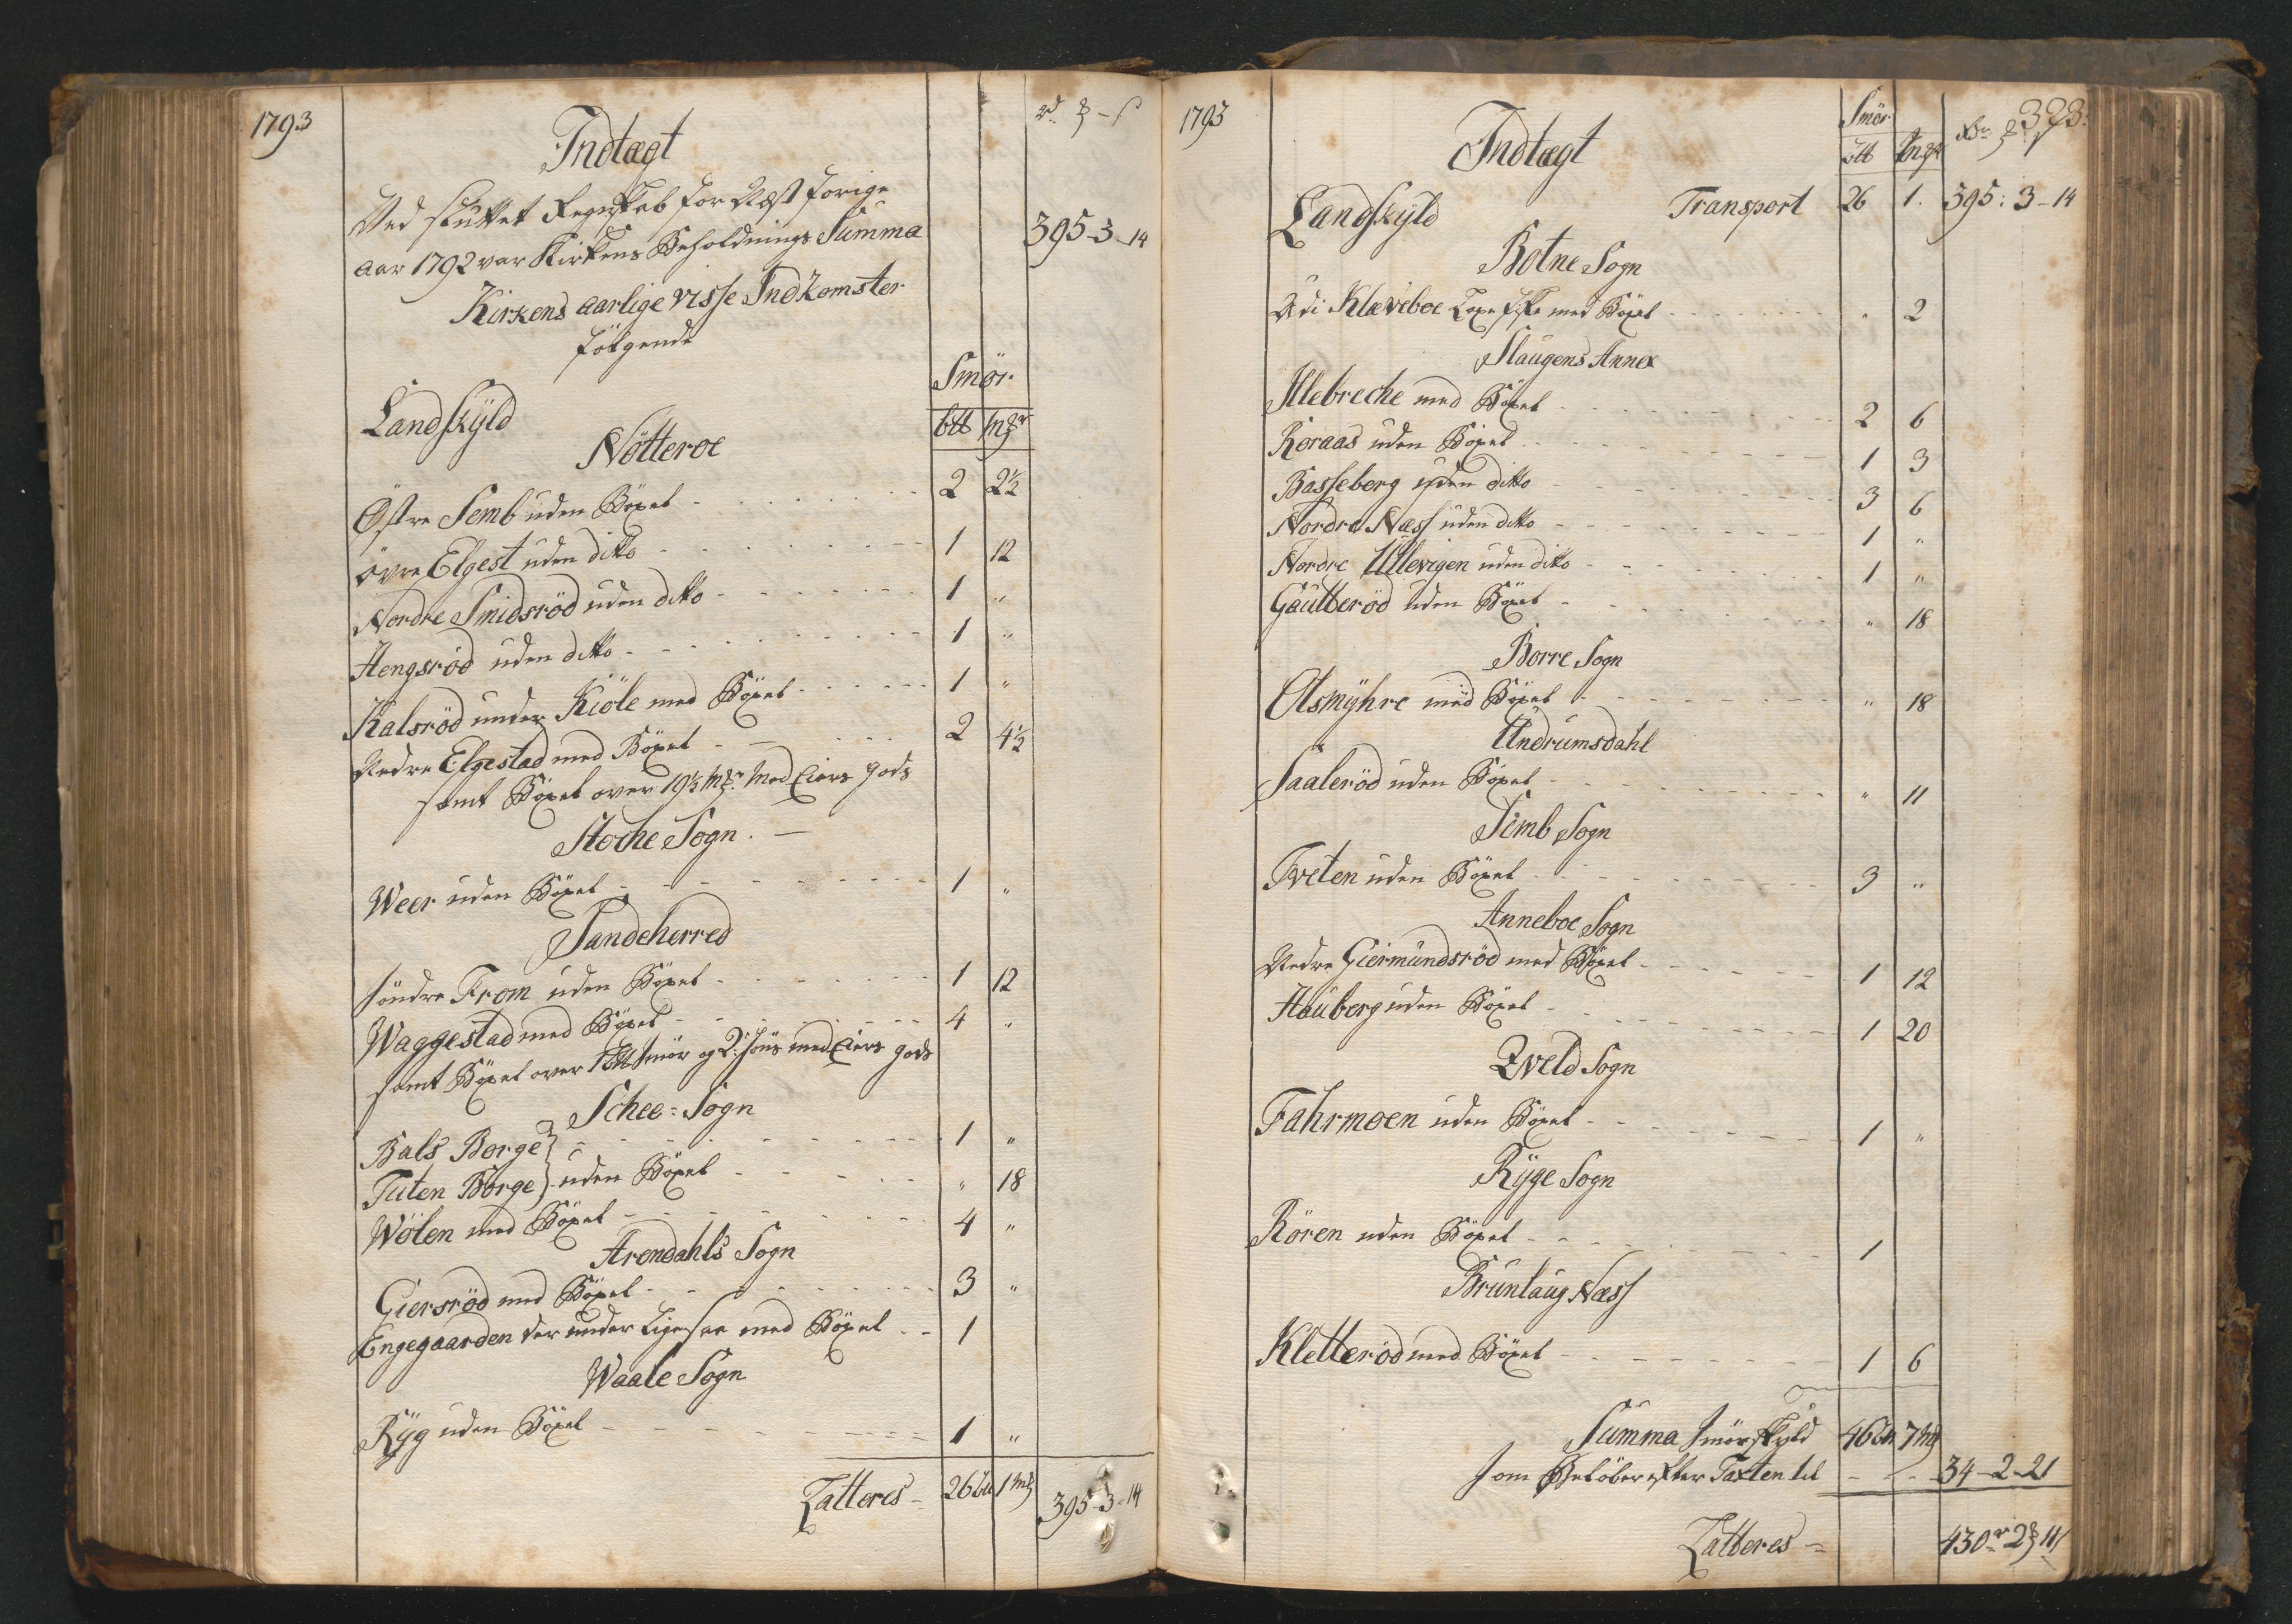 1793
Indtægt
rd ƶ - s
Ved sluttet Regnskab for Næst forige
Aar 1792 var Kirkens Beholdnings Summa
395-3-14
Kirkens aarlige visse Indkomster
følgende
Smör
Landskyld
btt mƶr
Nötteröe
Östre Semb uden Böxel - - - 2 2½
övre Elgest uden ditto - - - 1 12
Nordre Smidsröd uden ditto - - - 1 "
Hengsröd uden ditto - - - 1 "
Kalsröd under Kiöle med Böxel - - - 1 "
Nedre Elgestad med Böxel - - - 2 4½
samt Böxel over 19½ mƶr med Eiers gods
Stoche Sogn. -
Weer uden Böxel - - - 1 "
Sandeherred
söndre From uden Böxel - - - 1 12
Waggestad med Böxel - - - 4 "
samt Böxel over 1 btt smör og 2 huus med Eiers gods
Schee = Sogn
Bals Borge } - - - 1 "
Tuten Borge } uden Böxel - - - " 18
Wölen med Böxel - - - 4 "
Arendahls Sogn
Giersröd med Böxel - - - 3 "
Engegaarden der under ligesaa med Böxel - - 1
Waale Sogn
Ryg uden Böxel - - - 1 "
Latteres - 26 btt 1 mƶ 395-3-14
1793
Indtægt
Smör
btt mƶr
Rdr ƶ s
373.
Landskyld
Transport 26 1. 395: 3-14
Botne Sogn
Udi Klæveboe Laxefiske med Böxel - - - " 2
Slaugens Annex
Illebreche med Böxel - - - 2 6
Roraas uden Böxel - - - 1 3
Basseberg uden ditto - - - 3 6
Nordre Næss uden ditto - - - 1 "
Nordre Ullevigen uden ditto - - - 1 "
Gaulteröd uden Böxel - - - " 18
Borre Sogn
Olsmyhre med Böxel - - - " 18
Undrumsdahl
Saaleröd uden Böxel - - - " 11
Semb Sogn
Tveten uden Böxel - - - 3 "
Anneboe Sogn
Nedre Giermundsröd med Böxel - - - 1 12
Hauberg uden Böxel - - - 1 20
Qveld Sogn
Fahrmoen uden Böxel - - - 1 "
Ryge Sogn
Rören uden Böxel - - - 1
Brunlaug Næss
Kletteröd med Böxel - - - 1 6
Summa Smörskyld 46 btt 7 mƶ
som Belöber efter Taxten til - - 34-2-21
Latteres - 430 rdr 2 ƶ 11 s